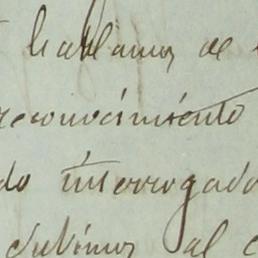 hablamos de
reconocimiento
do interrogado
debimos al